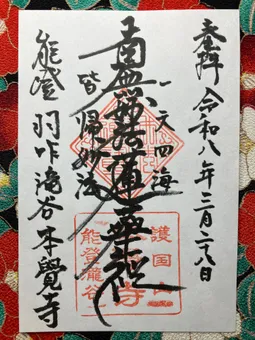 奉拝 令和八年二月二八日
一天四海
南無妙法蓮華経
皆帰妙法
能登 羽咋滝谷 本覺寺
護国山
寺
能登瀧谷